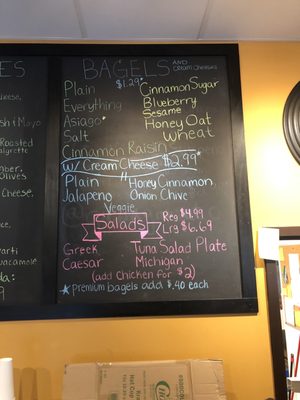 ES
BAGELS AND CREAM CHEESES
Plain $1.29* Cinnamon Sugar
Everything Blueberry
Asiago* Sesame
Salt Honey Oat
Wheat
Cinnamon Raisin
W/ Cream Cheese $2.99*
Plain Honey Cinnamon
Jalapeno Onion Chive
Veggie
Salads Reg $4.99
Lrg $6.69
Greek Tuna Salad Plate
Caesar Michigan
(add Chicken for $2)
*premium bagels add $.40 each
Mayo
Roasted
Olives
Cheese,